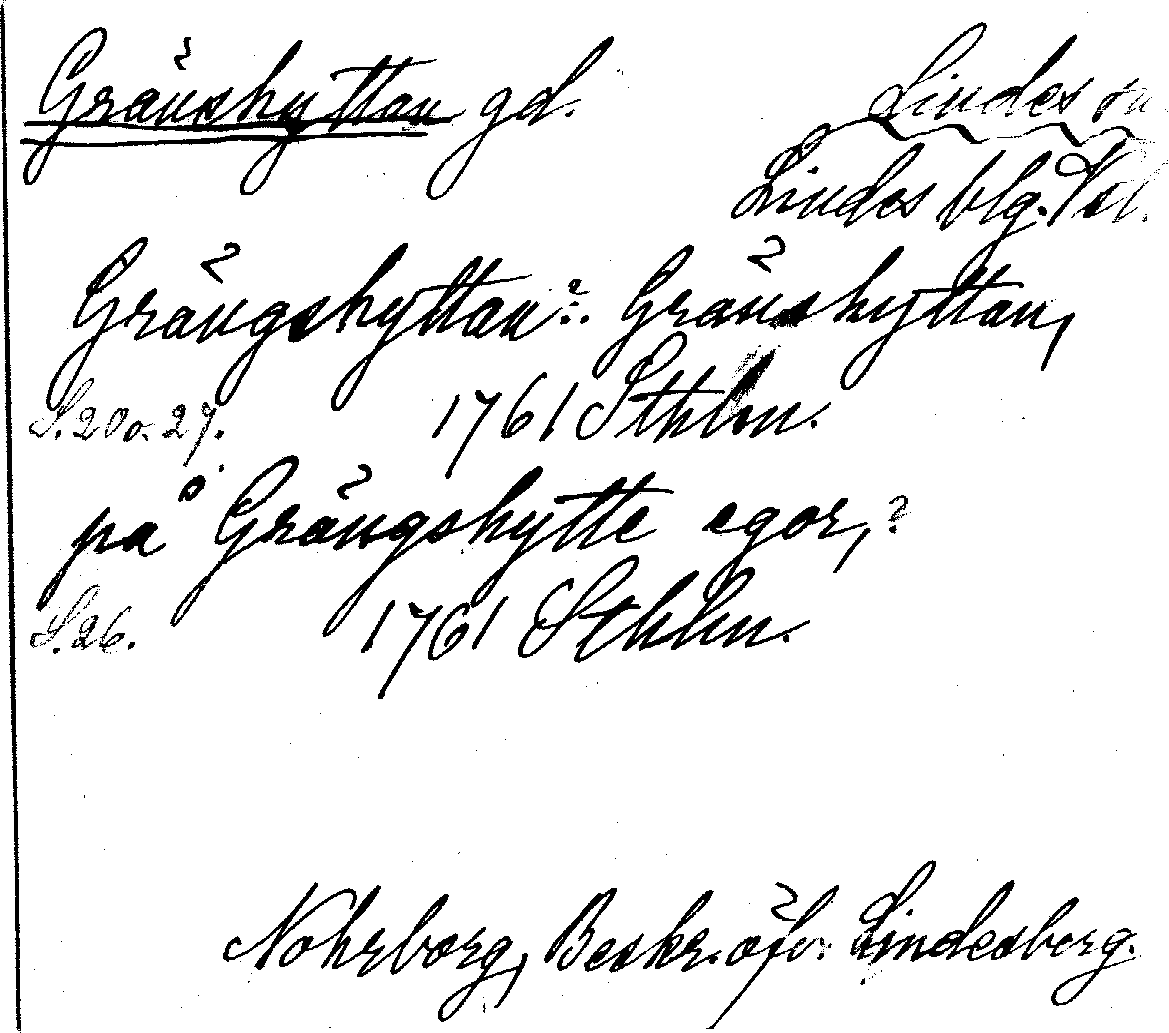 Gränshyttan gd. Lindes sn
Lindes blg. Vsl.
Grängshyttan ?: Gränshyttan,
S. 20 o. 27. 1761 Sthlm.
på Grängshytte egor, ?
S. 26. 1761 Sthlm.
Nohrborg, Beskr. öfv. Lindesberg.